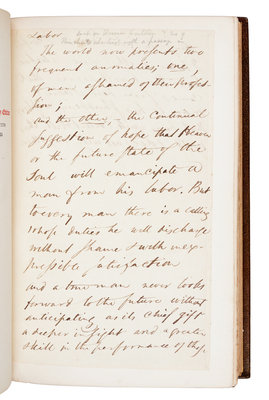 Labor
The world now presents two
frequent anomalies; one,
of men ashamed of their profes-
sion;
and the other, – the continual
suggestion of hope that Heaven
or the future state of the
soul will emancipate a
man from his labor. But
to every man there is a calling
whose duties he will discharge
without shame & with inex-
pressible satisfaction
and a true man never looks
forward to the future without
anticipating as its chief gift
a deeper insight and a greater
skill in the performance of those